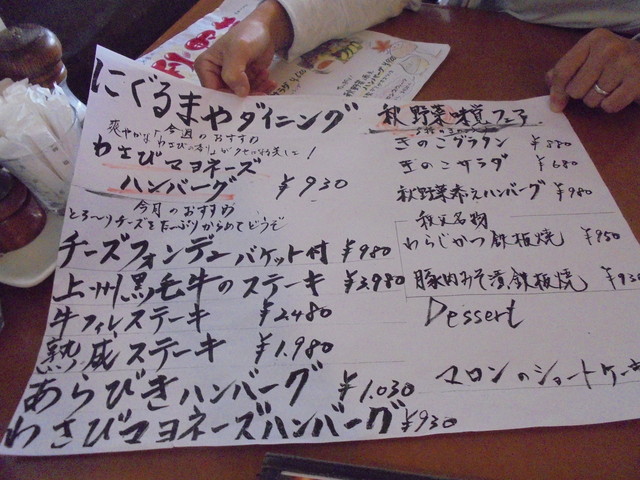 にぐるまやダイニング
爽やかな「今週のおすすめ
わさびの香り」がクセになる美味しさ!
わさびマヨネーズ
ハンバーグ ¥930
今月のおすすめ
とろ〜りチーズをたーぷりからめてどうぞ
チーズフォンデュ バケット付 ¥980
上州黒毛牛のステーキ ¥3,980
牛フィレステーキ ¥2480
熟成ステーキ ¥1,980
あらびきハンバーグ ¥1,030
わさびマヨネーズハンバーグ ¥930
秋野菜味覚フェア
きのこグラタン ¥880
きのこサラダ ¥680
秋野菜添えハンバーグ ¥980
秩父名物
わらじかつ鉄板焼 ¥950
豚肉みそ漬鉄板焼 ¥930
Dessert
マロンのショートケーキ